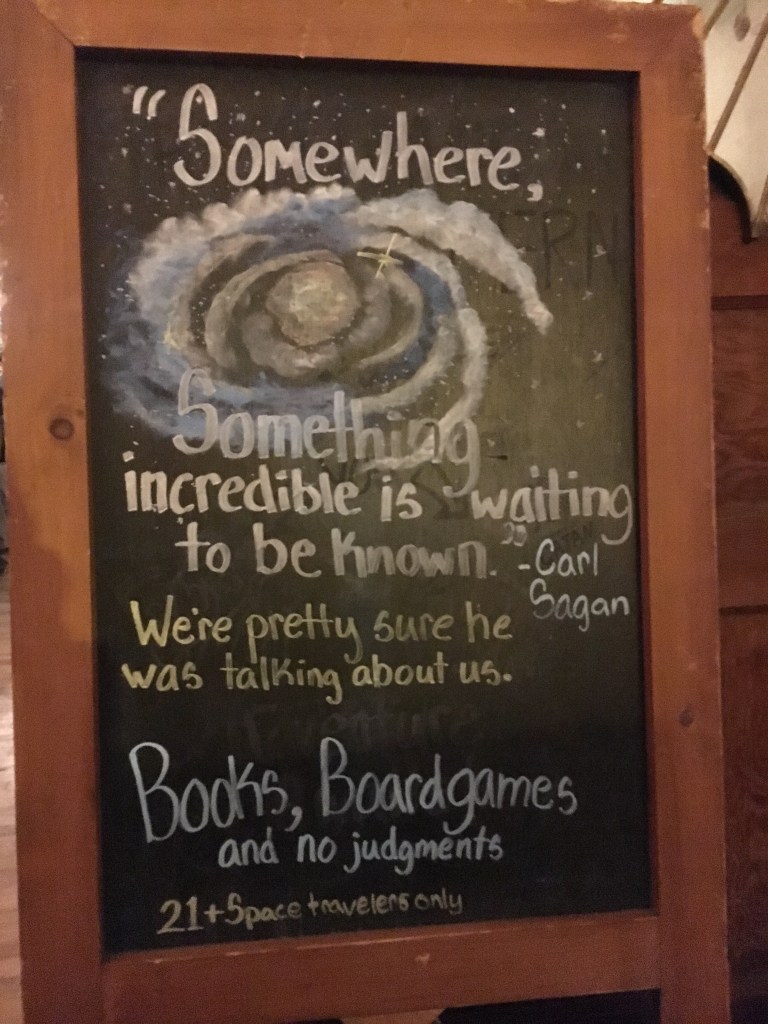 "Somewhere,
Something
incredible is waiting
to be known."
-Carl
Sagan
We're pretty sure he
was talking about us.
Books, Boardgames
and no judgments
21+ Space travelers only